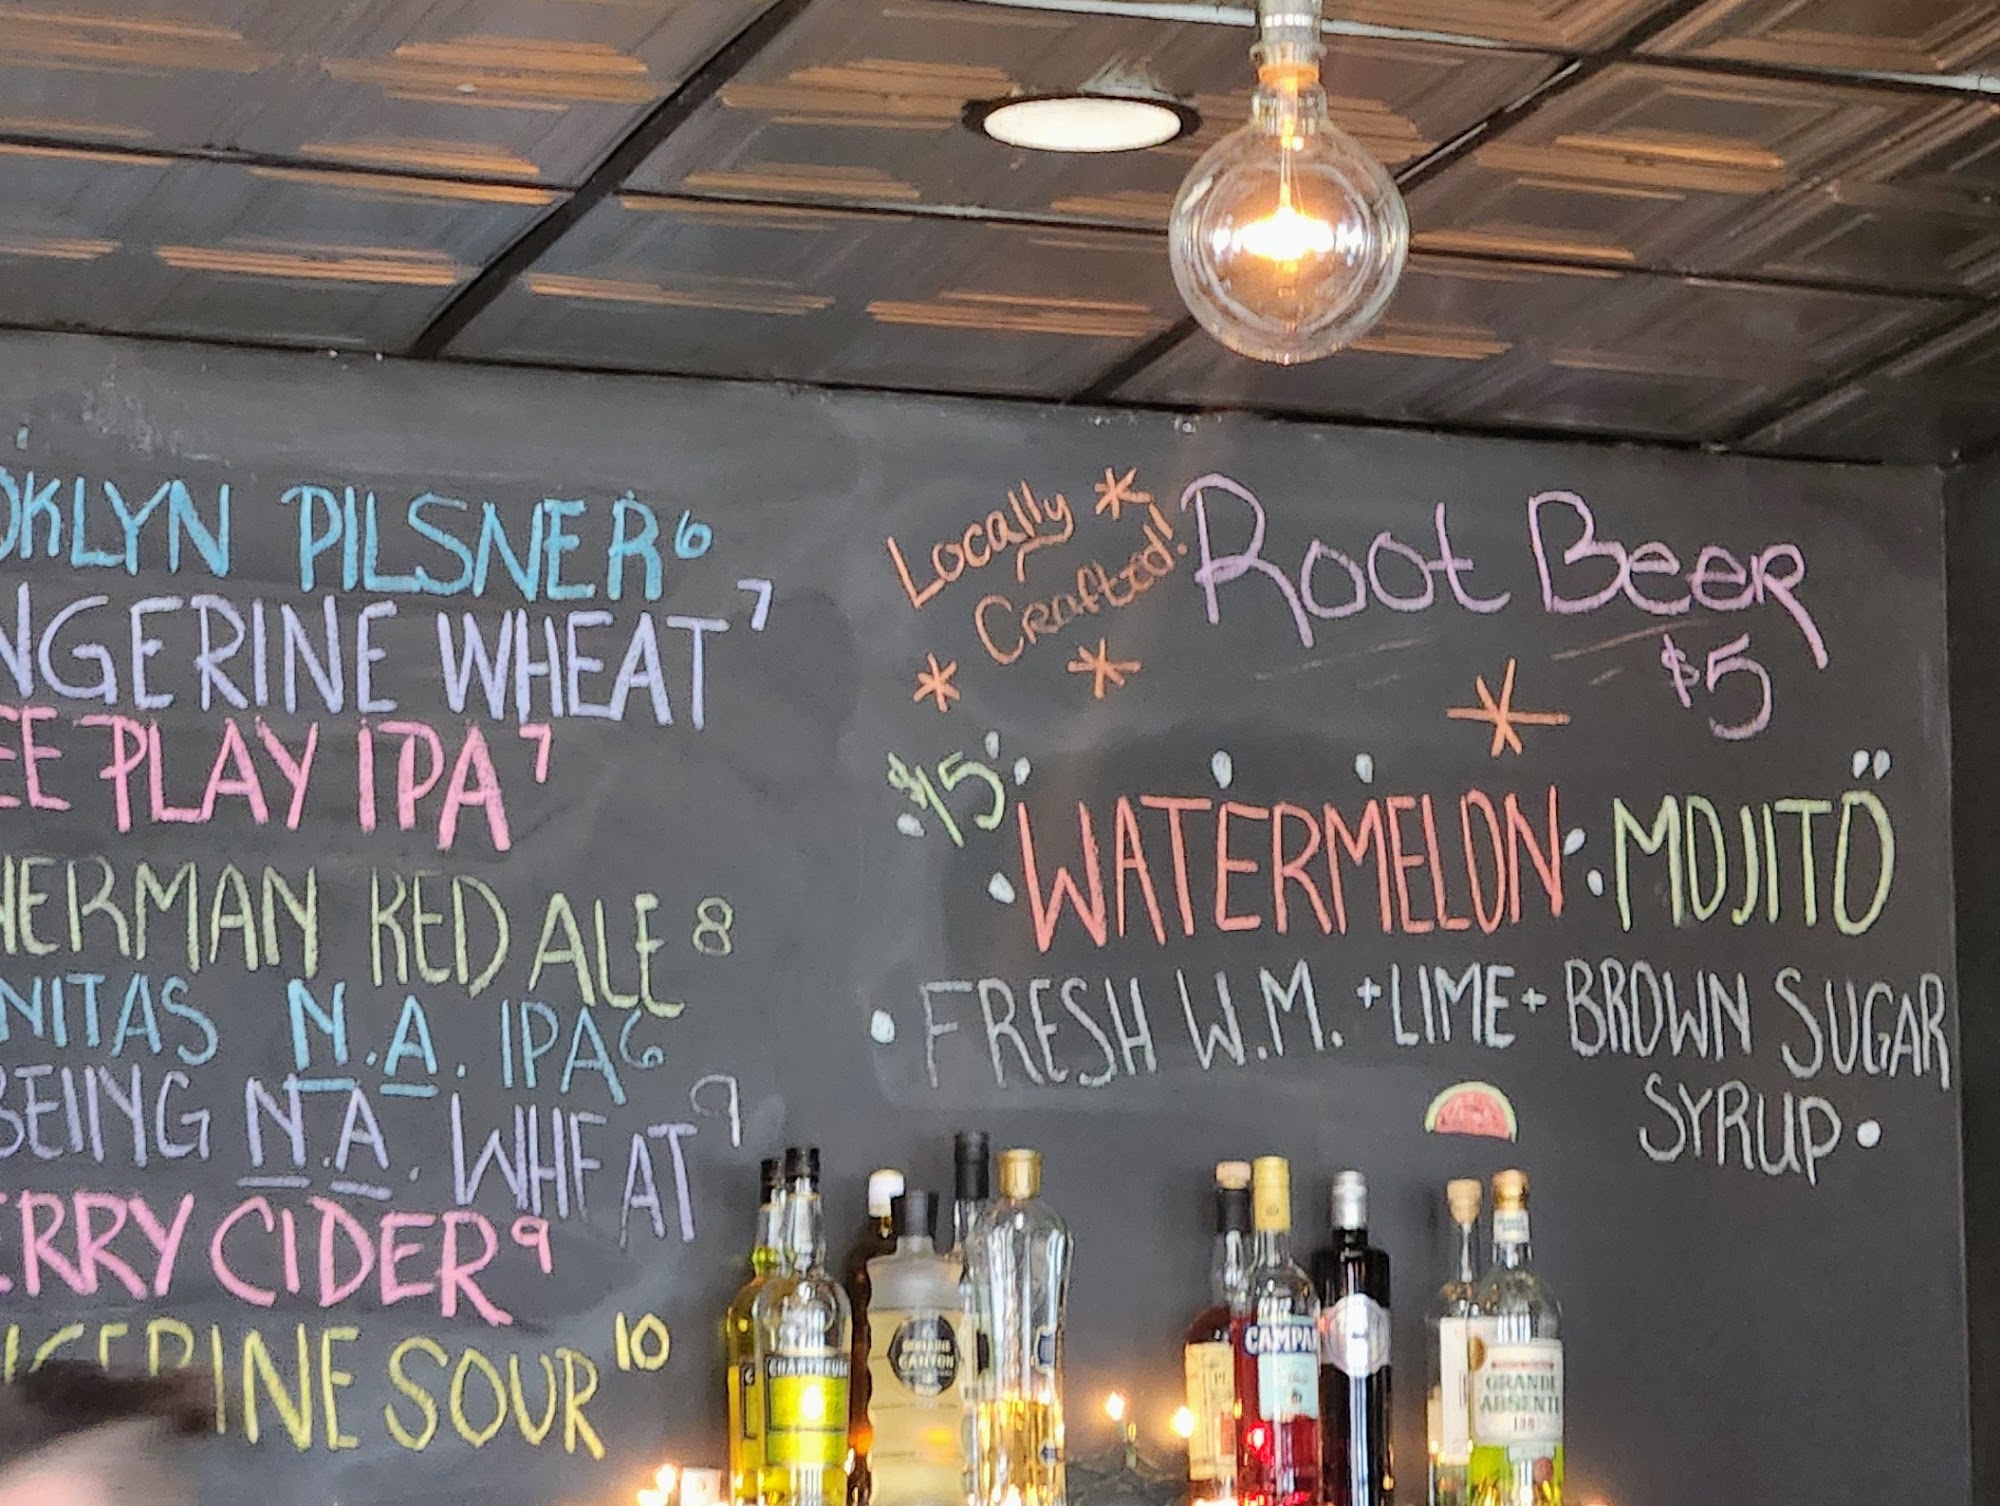 OKLYN PILSNER 6
NGERINE WHEAT 7
EE PLAY IPA 7
HERMAN RED ALE 8
NITAS N.A. IPA 6
BEING N.A. WHEAT 9
ERRY CIDER 9
NGERINE SOUR 10
Locally
Crafted!
Root Beer
$5
$15
WATERMELON MOJITO
FRESH W.M. + LIME + BROWN SUGAR
SYRUP
CHARTREUSE
CANYON
CAMPA
GRANDE
ABSENTE